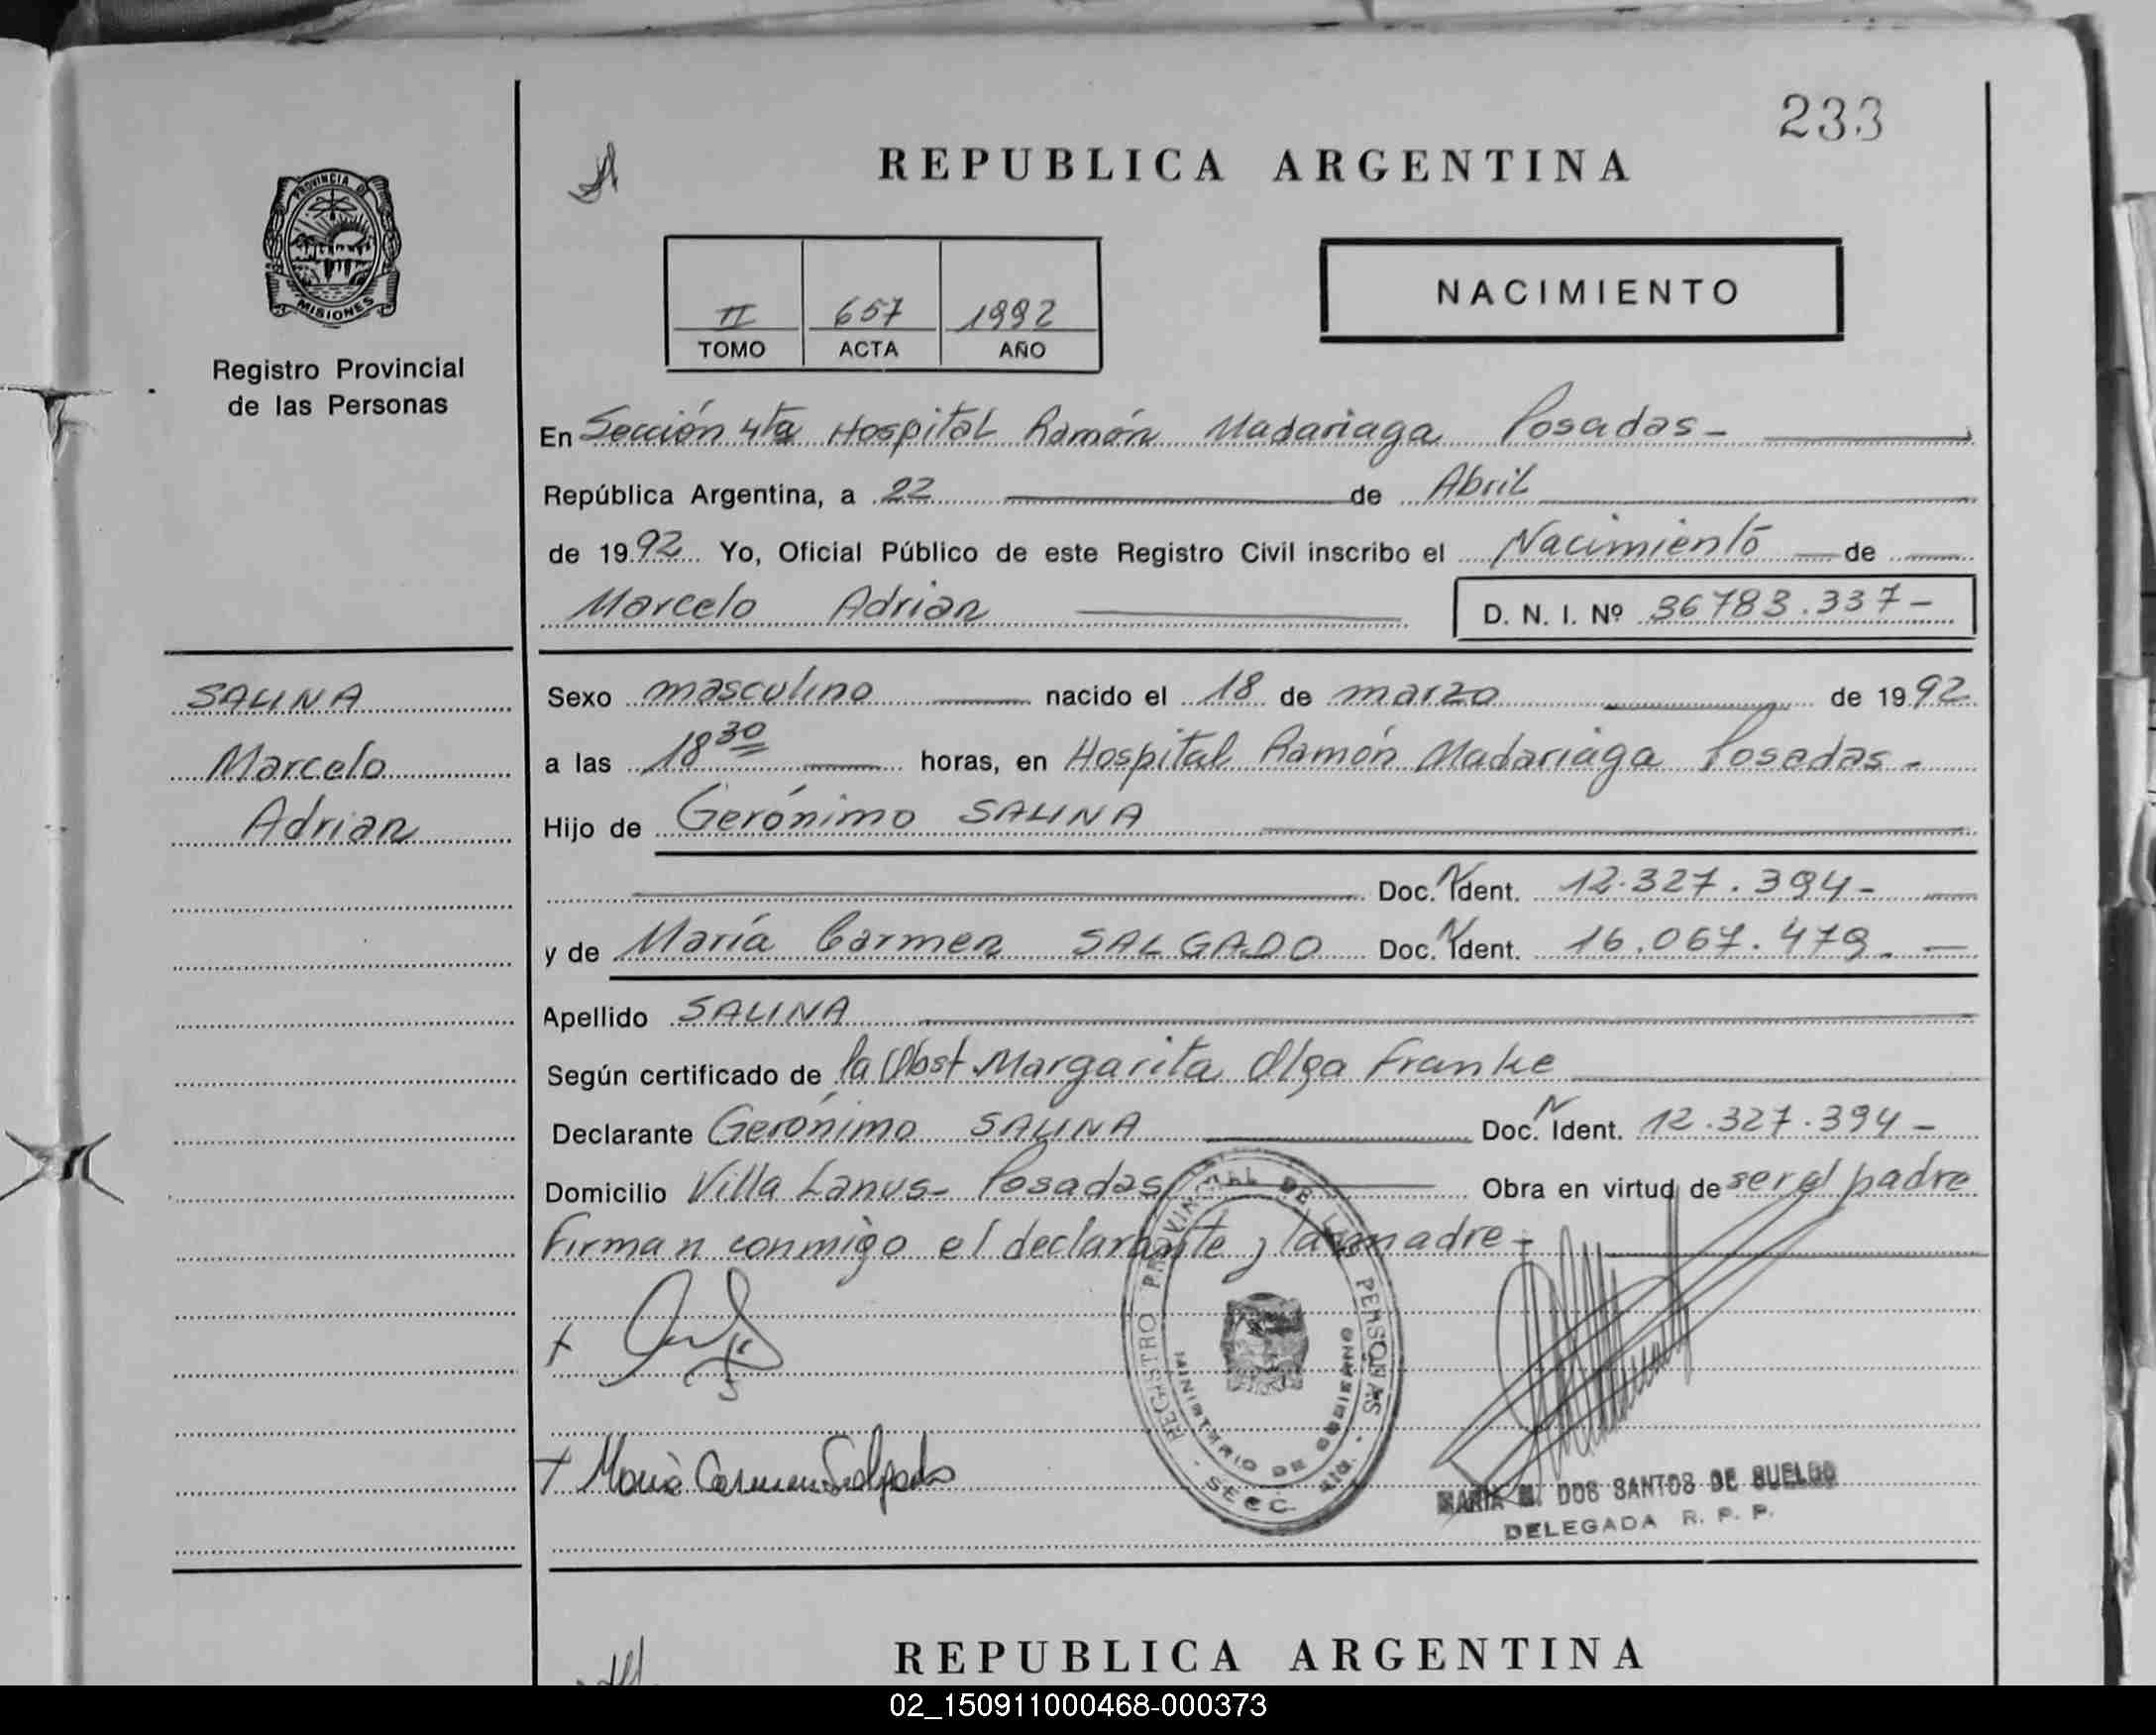 233
REPUBLICA ARGENTINA
PROVINCIA DE
MISIONES
Registro Provincial
de las Personas
II 657 1992
TOMO ACTA AÑO
NACIMIENTO
En Sección 4ta Hospital Ramón Madariaga Posadas-
República Argentina, a 22 de Abril
de 1992 Yo, Oficial Público de este Registro Civil inscribo el Nacimiento de
Marcelo Adrian D. N. I. Nº 36783.337-
SALINA
Marcelo
Adrian
Sexo masculino nacido el 18 de marzo de 1992
a las 18 30 horas, en Hospital Ramón Madariaga Posadas-
Hijo de Gerónimo SALINA
Doc. N Ident. 12.327.394-
y de María Carmen SALGADO Doc. N Ident. 16.067.479.-
Apellido SALINA
Según certificado de la Obst. Margarita Olga Franke
Declarante Gerónimo SALINA Doc. N Ident. 12.327.394-
Domicilio Villa Lanus- Posadas Obra en virtud de ser el padre
Firman conmigo el declarante y la madre-
REGISTRO PROVINCIAL DE LAS PERSONAS
MINISTERIO DE GOBIERNO
SECC.
María Carmen Salgado
DOS SANTOS DE SUELDO
DELEGADA R. P. P.
REPUBLICA ARGENTINA
02_150911000468-000373